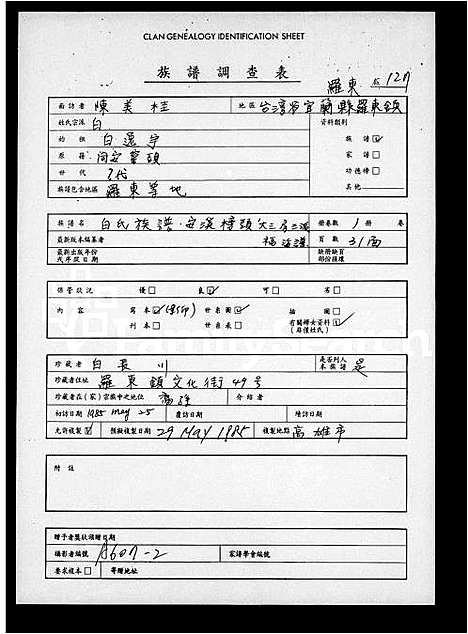 CLAN GENEALOGY IDENTIFICATION SHEET
族譜調查表
羅東 127
面訪者 陳美桂 地區 台灣省宜蘭縣羅東鎮
姓氏宗派 白 資料類別
始祖 白逸宇 族譜☑
原籍 同安 家譜□
世代 7代 功德榜□
族譜包含地區 羅東等地 其他
族譜名 白氏族譜 冊卷數 1 冊 卷
最新版本編纂者 頁數 31面
最新出版年份或年版日期 缺冊缺頁部份損壞
保管狀況 優□ 良☑ 可□ 劣□
內容 寫本☑(影印) 世系圖☑ 插圖□
刊本□ 世系表□ 有關婦女資料☑(母僅姓氏)
珍藏者 白長川 是否列入本族譜 是
珍藏者住址 羅東鎮文化街49号
珍藏者在(家)宗族中之地位 介紹者
初訪日期 1985 May 25 覆訪日期 隨訪日期
允許複製☑ 預擬複製日期 29 May 1985 複製地點 高雄市
附註
贈予者獎狀頒贈日期
攝影者編號 A607-2 家譜學會編號
要求複本□ 寄贈地址